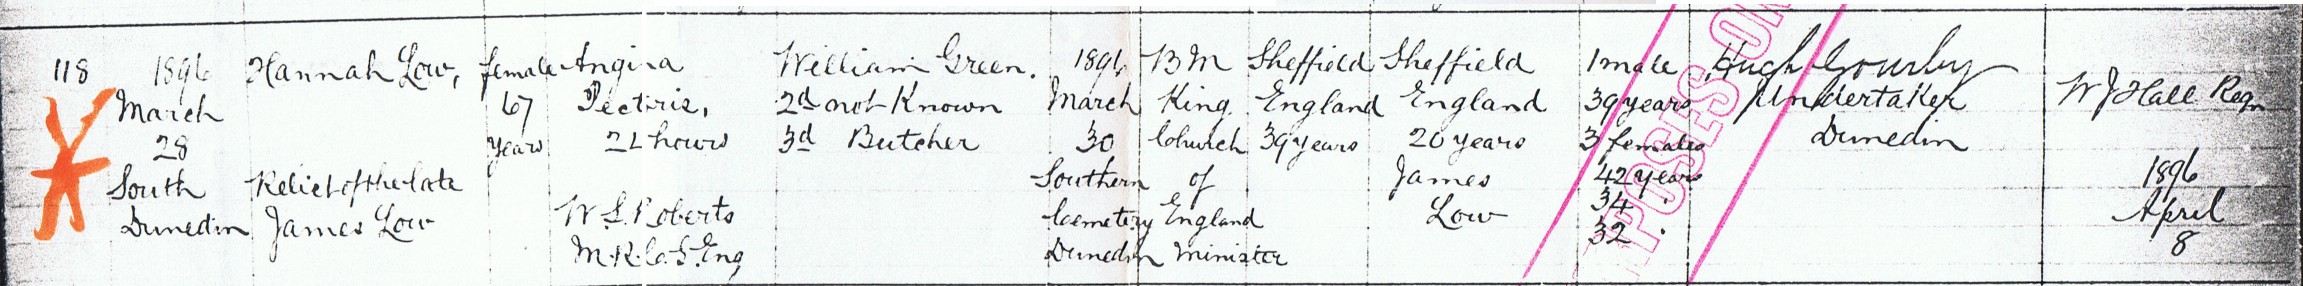 118
1896
March
28
South
Dunedin
Hannah Low,
Relict of the late
James Low
female
67
years
Angina
Pectoris,
21 hours
W. S. Roberts
M.R.C.S. Eng
William Green.
2d not Known
3d Butcher
1896
March
30
Southern
Cemetery
Dunedin
B M
King
Church
of
England
Minister
Sheffield
England
39 years
Sheffield
England
20 years
James
Low
1 male
39 years
3 females
42 years
34 "
32 "
Hugh Gourley
Undertaker
Dunedin
W J Hall Regr
1896
April
8
POSES ON